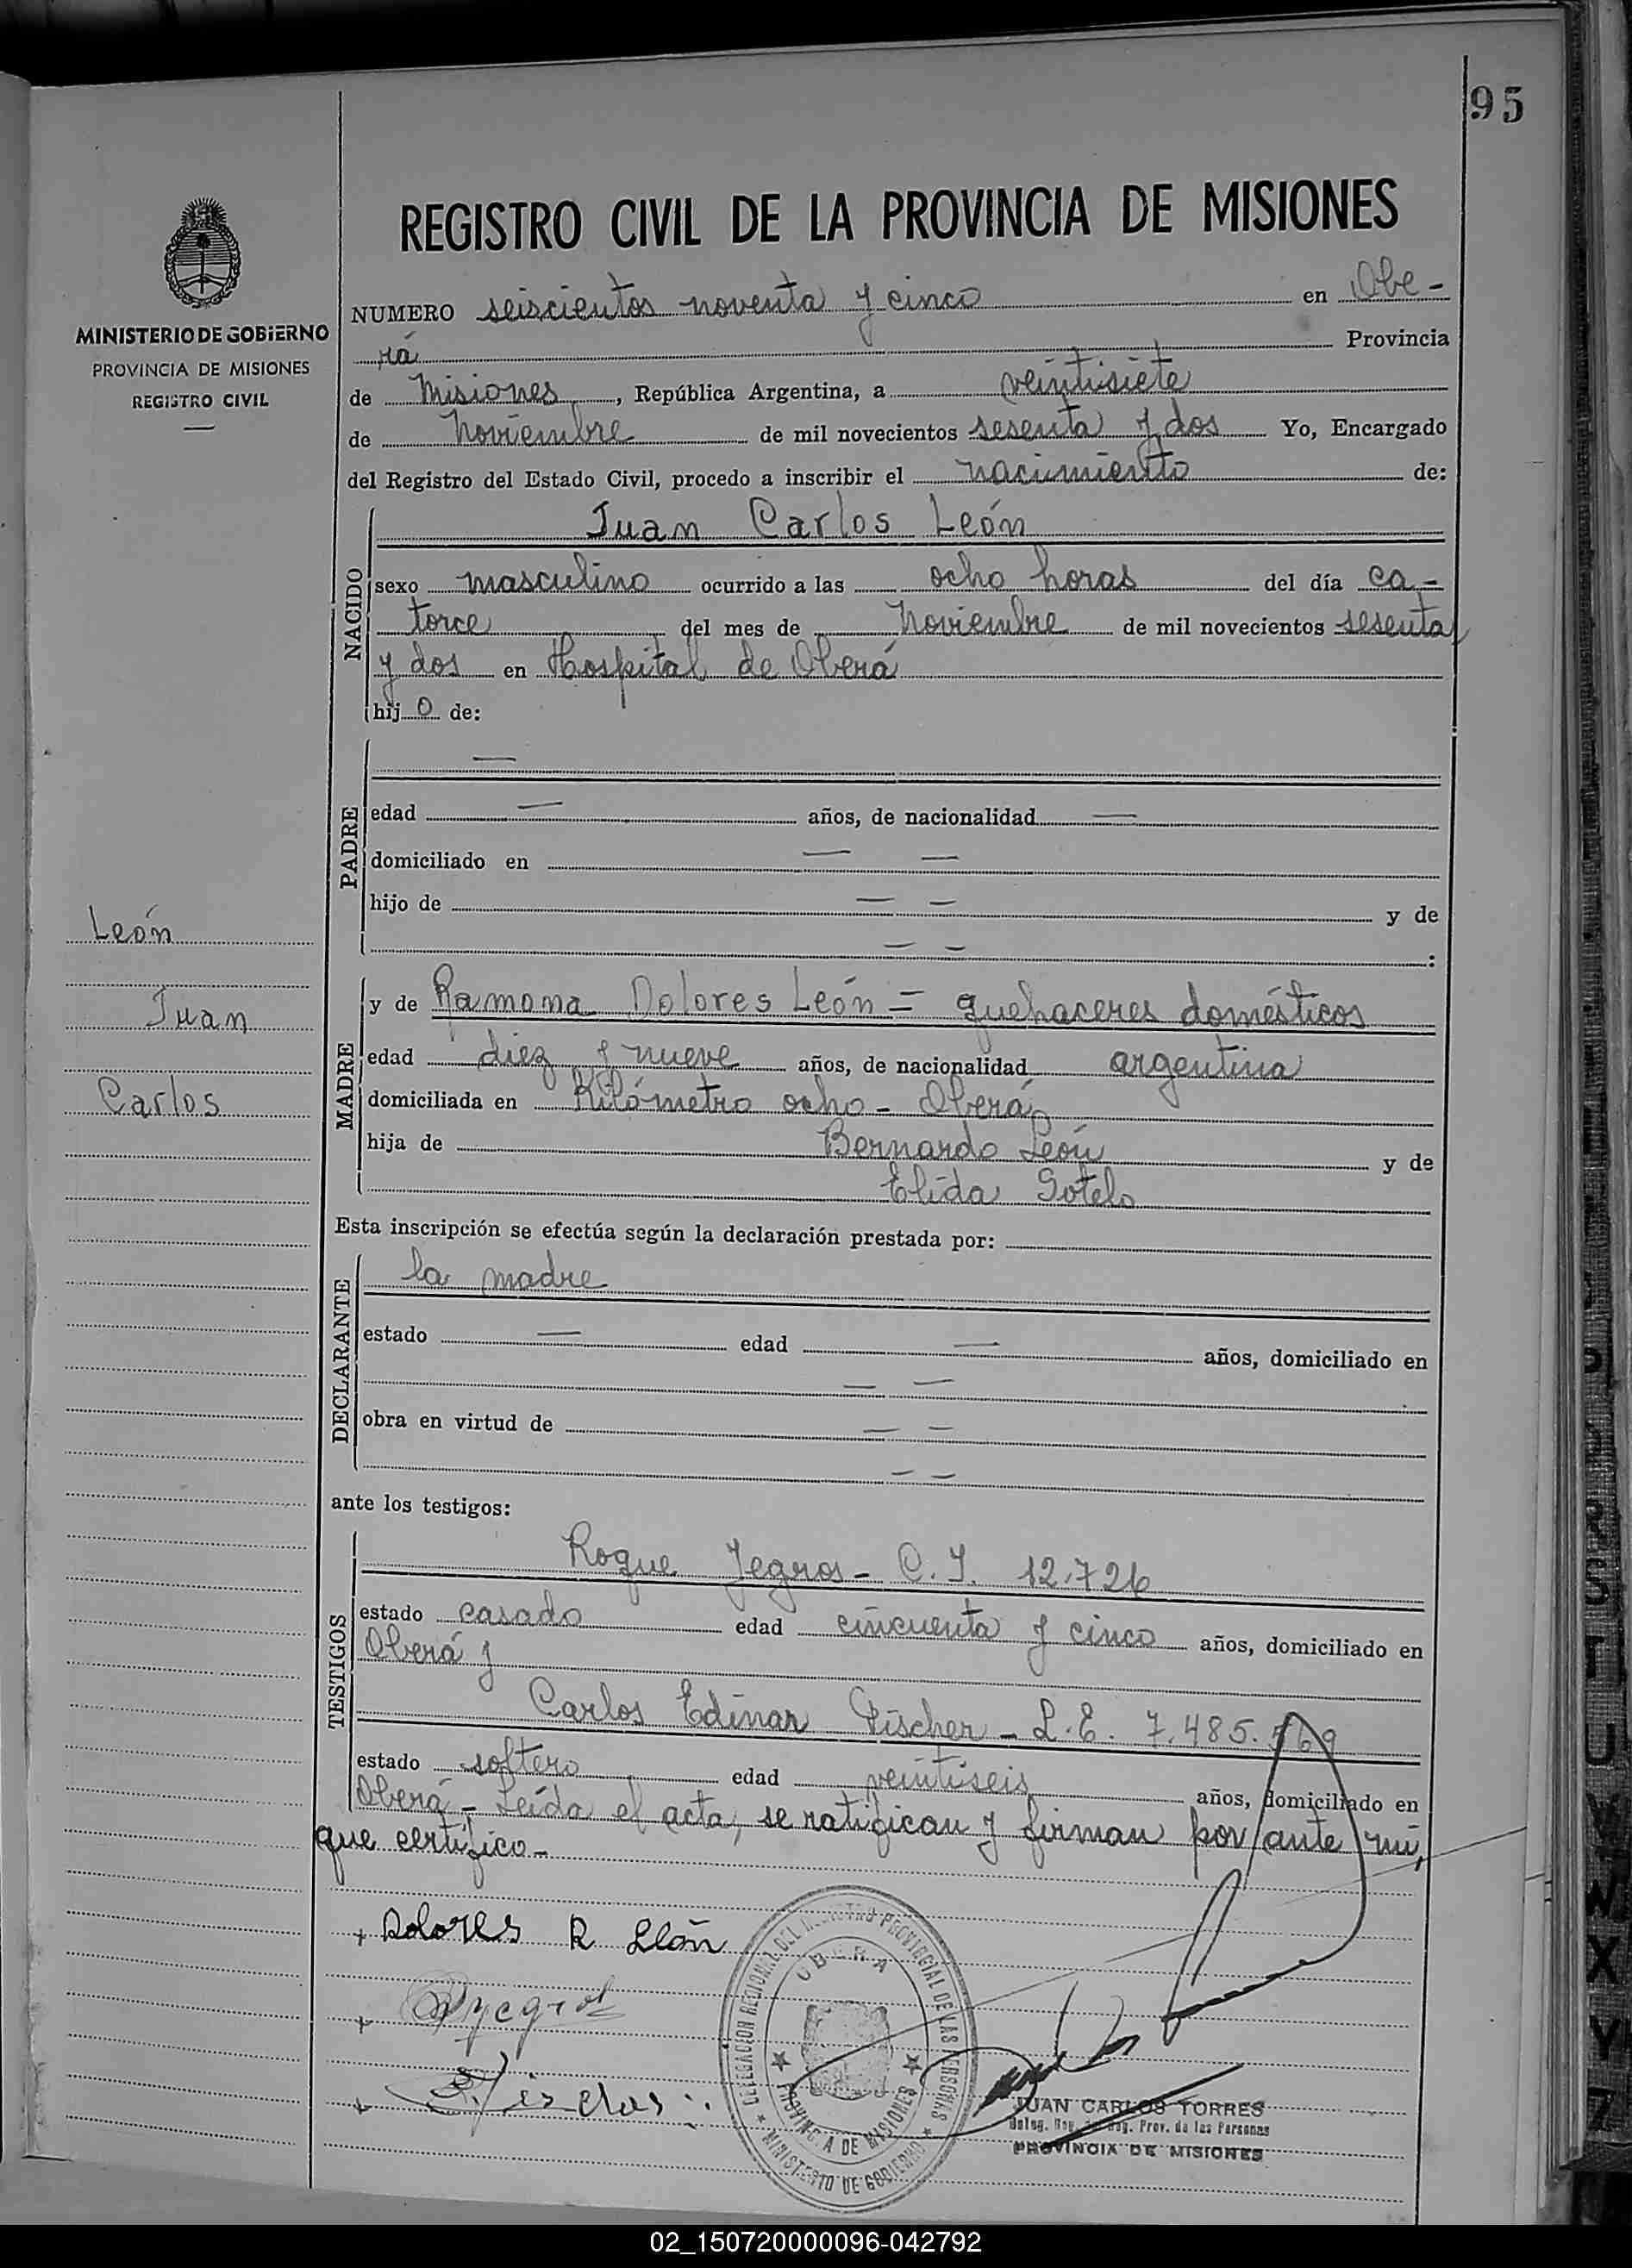 95
REGISTRO CIVIL DE LA PROVINCIA DE MISIONES
MINISTERIO DE GOBIERNO
PROVINCIA DE MISIONES
REGISTRO CIVIL
NUMERO seiscientos noventa y cinco en Obe-
rá Provincia
de Misiones, República Argentina, a veintisiete
de Noviembre de mil novecientos sesenta y dos Yo, Encargado
del Registro del Estado Civil, procedo a inscribir el nacimiento de:
NACIDO
Juan Carlos León
sexo masculino ocurrido a las ocho horas del día ca-
torce del mes de Noviembre de mil novecientos sesenta
y dos en Hospital de Oberá
hijo de:
PADRE
—
edad — años, de nacionalidad —
domiciliado en — —
hijo de — — y de
— — :
León
Juan
Carlos
MADRE
y de Ramona Dolores León = quehaceres domésticos
edad diez y nueve años, de nacionalidad argentina
domiciliada en Kilómetro ocho - Oberá
hija de Bernardo León y de
Elida Sotelo
Esta inscripción se efectúa según la declaración prestada por:
DECLARANTE
la madre
estado — edad — años, domiciliado en
— —
obra en virtud de — —
— —
ante los testigos:
TESTIGOS
Roque Yegros - C.I. 12.726
estado casado edad cincuenta y cinco años, domiciliado en
Oberá y
Carlos Edinar Fischer - L.E. 7.485.569
estado soltero edad veintiseis años, domiciliado en
Oberá - Leída el acta, se ratifican y firman por ante mí,
que certifico -
+ Dolores R León
DELEGACION REGIONAL DEL REGISTRO PROVINCIAL DE LAS PERSONAS
OBERA
PROVINCIA DE MISIONES
MINISTERIO DE GOBIERNO
JUAN CARLOS TORRES
Deleg. Reg. del Reg. Prov. de las Personas
PROVINCIA DE MISIONES
02_150720000096-042792